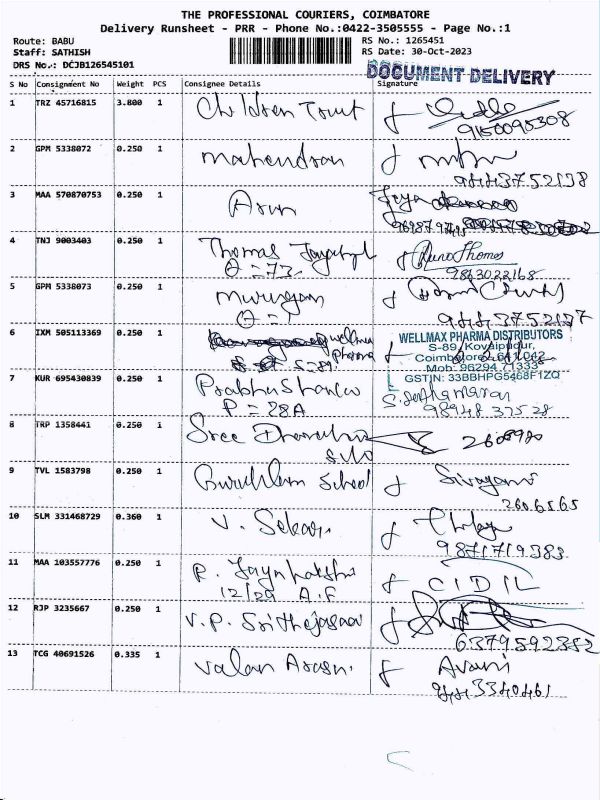 THE PROFESSIONAL COURIERS, COIMBATORE
Delivery Runsheet - PRR - Phone No.:0422-3505555 - Page No.:1
Route: BABU RS No.: 1265451
Staff: SATHISH RS Date: 30-Oct-2023
DRS No.: DCJB126545101
DOCUMENT DELIVERY
S No Consignment No Weight PCS Consignee Details Signature
1 TRZ 45716815 3.800 1 Children Trust
9150095308
2 GPM 5338072 0.250 1 Mahendran
9443752138
3 MAA 570870753 0.250 1 Arun Jeya
4 TNJ 9003403 0.250 1 Thomas
Thomas
9863022168
5 GPM 5338073 0.250 1 Murugan
9443752137
6 IXM 505113369 0.250 1 wellmax
pharma
S-89
WELLMAX PHARMA DISTRIBUTORS
S-89, Kovaipudur,
Coimbatore - 641 042
Mob: 96294 71333
GSTIN: 33BBHPG5468F1ZQ
7 KUR 695430839 0.250 1 Prabhu Shankar
P = 28A
98948 37528
8 TRP 1358441 0.250 1 Sree
2605980
9 TVL 1583798 0.250 1 Gurukulam School Sivagami
260 6565
10 SLM 331468729 0.360 1 V. Sekar
9871719383
11 MAA 103557776 0.250 1 P. Jayalakshmi
12/29 A.F
12 RJP 3235667 0.250 1 V.P.
6379592352
13 TCG 40691526 0.335 1 Valan Arasu. Avani
9443340461